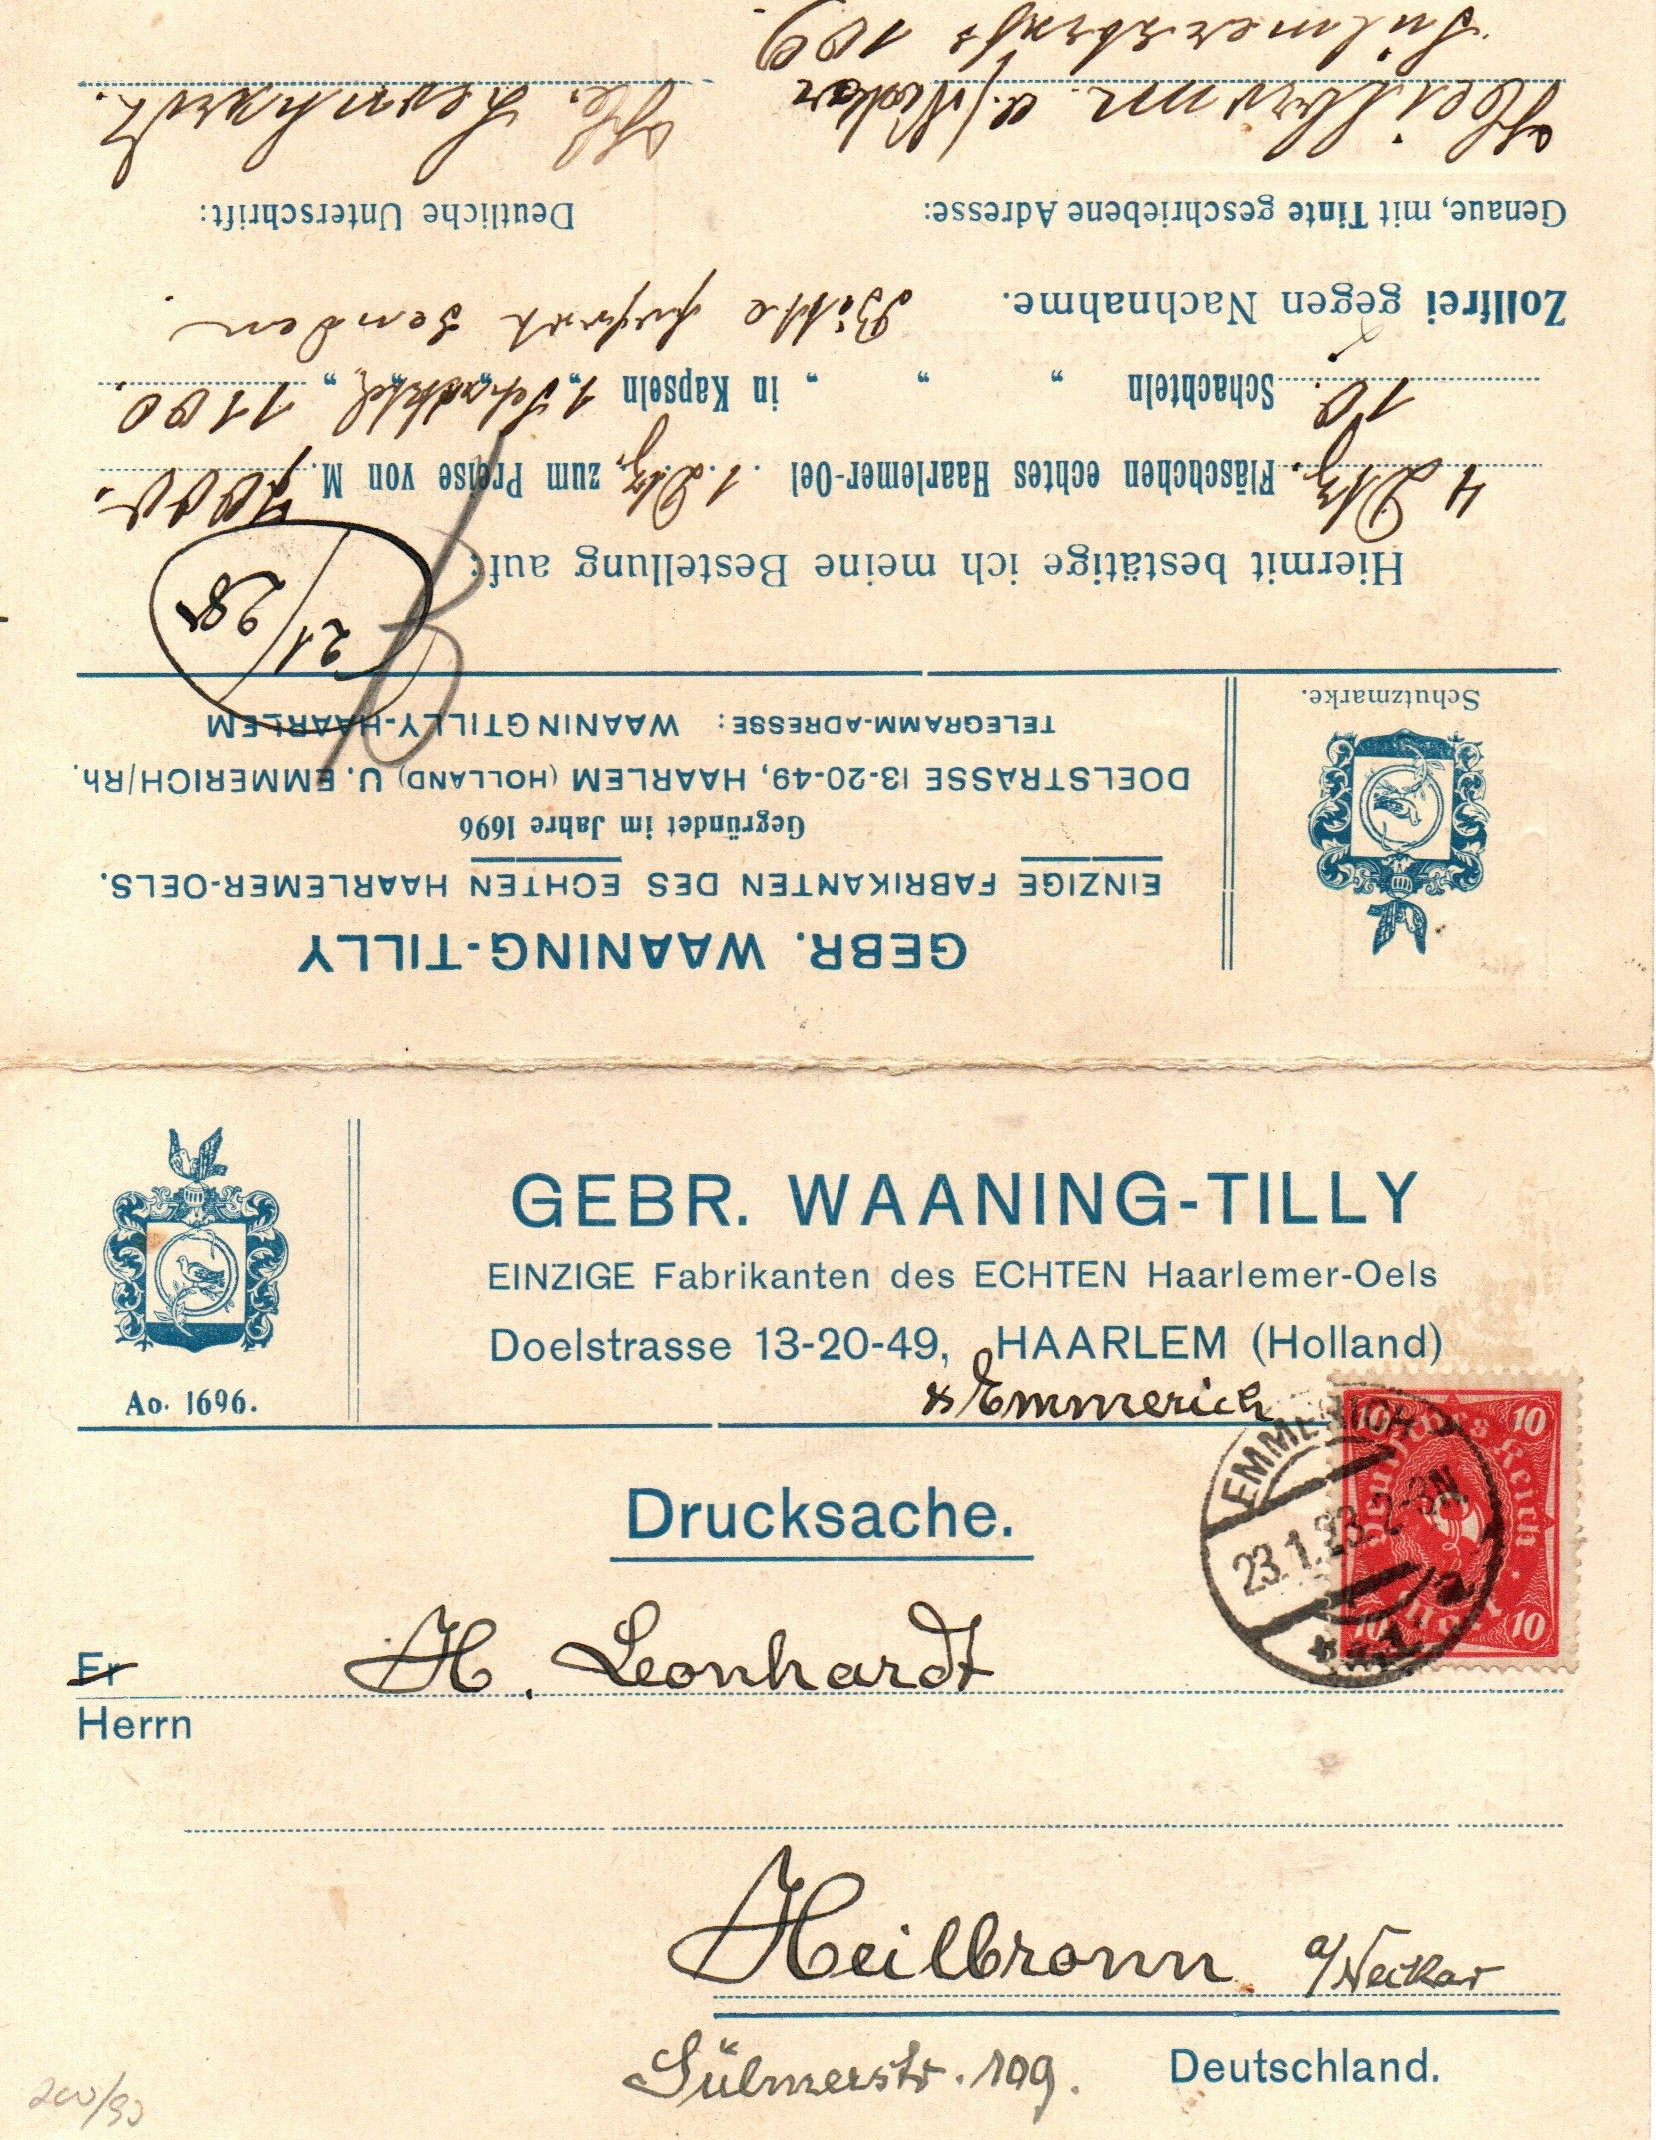 GEBR. WAANING-TILLY
EINZIGE FABRIKANTEN DES ECHTEN HAARLEMER-OELS.
Gegründet im Jahre 1696
DOELSTRASSE 13-20-49, HAARLEM (HOLLAND) U. EMMERICH/Rh.
TELEGRAMM-ADRESSE: WAANINGTILLY-HAARLEM
Schutzmarke.
21/28
Hiermit bestätige ich meine Bestellung auf:
4 Dtz. Fläschchen echtes Haarlemer-Oel . 1 Dtz. zum Preise von M.
10. Schachteln " " " in Kapseln 1 Schachtel " " " 1100.
Zollfrei gegen Nachnahme. Bitte sofort senden
Genaue, mit Tinte geschriebene Adresse: Deutliche Unterschrift:
Heilbronn a/Neckar Hr. Leonhardt.
Sülmerstraße 109
GEBR. WAANING-TILLY
EINZIGE Fabrikanten des ECHTEN Haarlemer-Oels
Doelstrasse 13-20-49, HAARLEM (Holland)
& Emmerich
Ao. 1696.
EMMERICH
23.1.23.2-3N
10 Deutsches Reich 10
10 10
Drucksache.
Fr
Herrn
H. Leonhardt
Heilbronn a/Neckar
Sülmerstr. 109.
Deutschland.
200/93